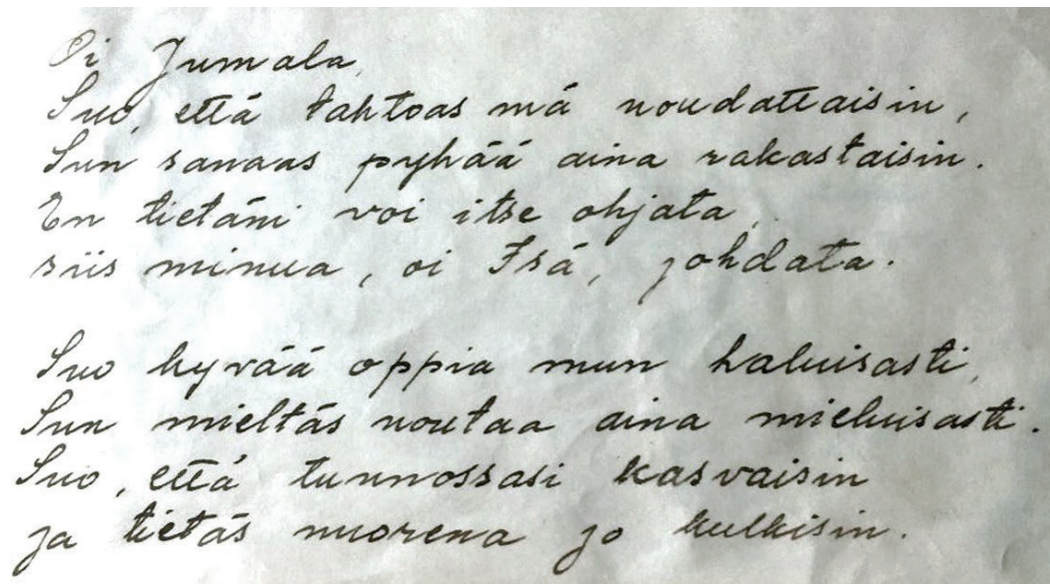 Oi Jumala,
Suo, että tahtoas mä noudattaisin,
Sun sanaas pyhää aina rakastaisin.
En tietäni voi itse ohjata,
siis minua, oi Isä, johdata.
Suo hyvää oppia mun haluisasti,
Sun mieltäs noutaa aina mieluisasti.
Suo, että tunnossasi kasvaisin
ja tietäs nuorena jo kulkisin.